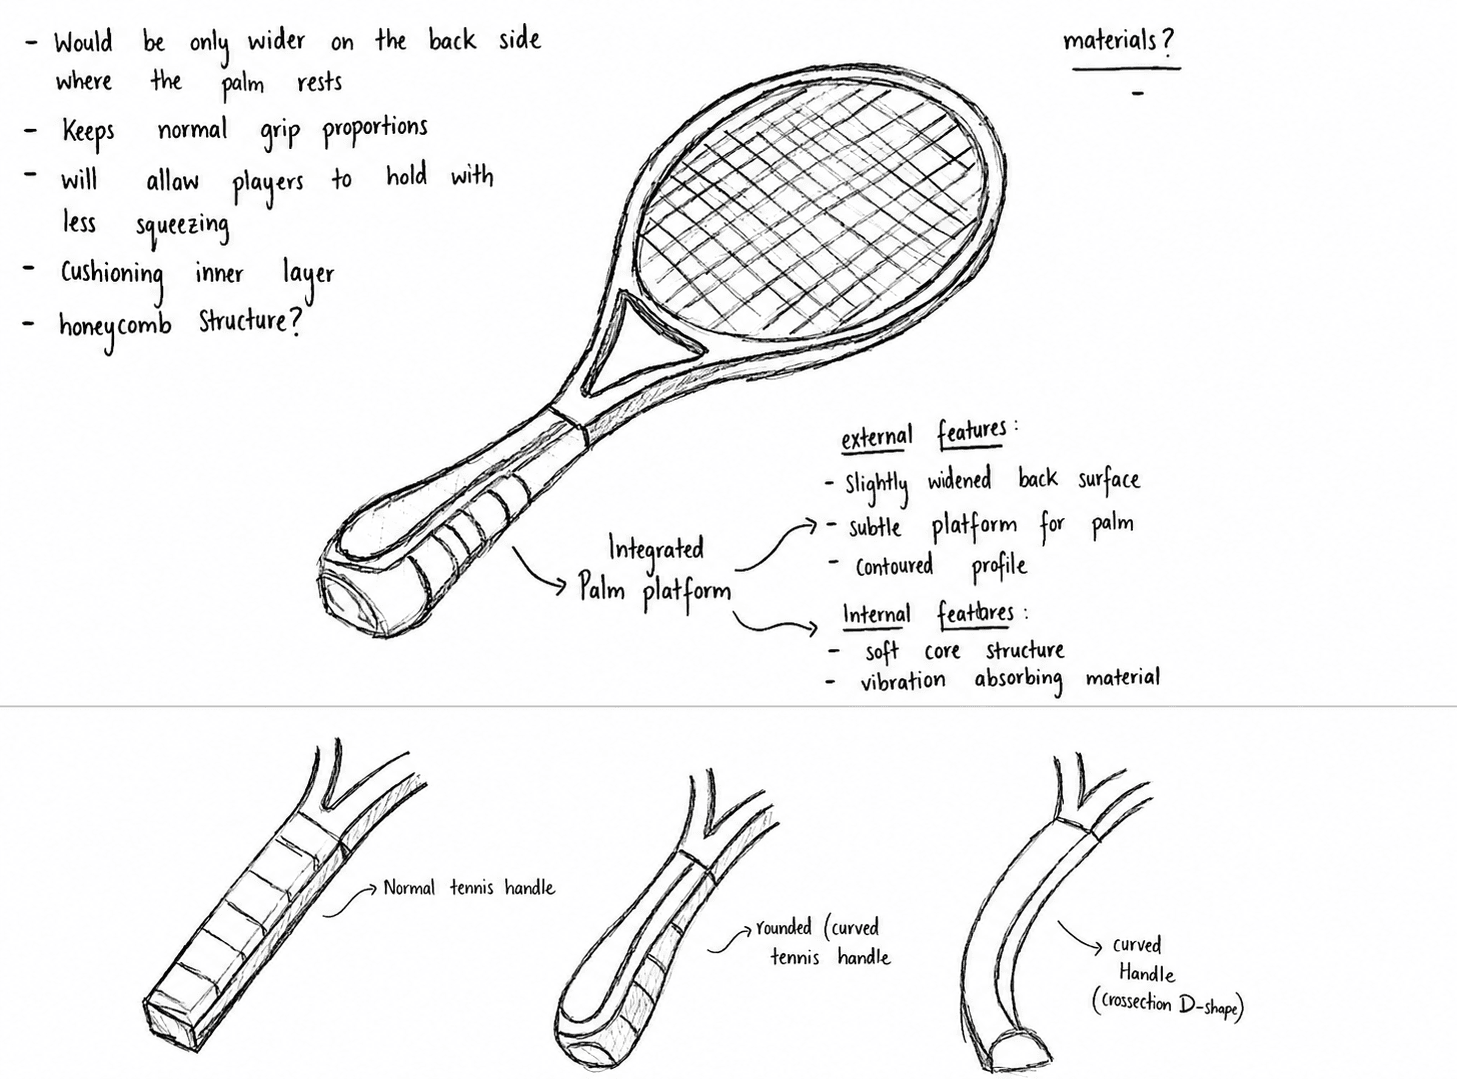 - Would be only wider on the back side
where the palm rests
- Keeps normal grip proportions
- will allow players to hold with
less squeezing
- Cushioning inner layer
- honeycomb structure?
materials?
-
external features:
- Slightly widened back surface
- subtle platform for palm
- contoured profile
Integrated
Palm platform
Internal features:
- soft core structure
- vibration absorbing material
Normal tennis handle
rounded (curved
tennis handle
curved
Handle
(crossection D-shape)